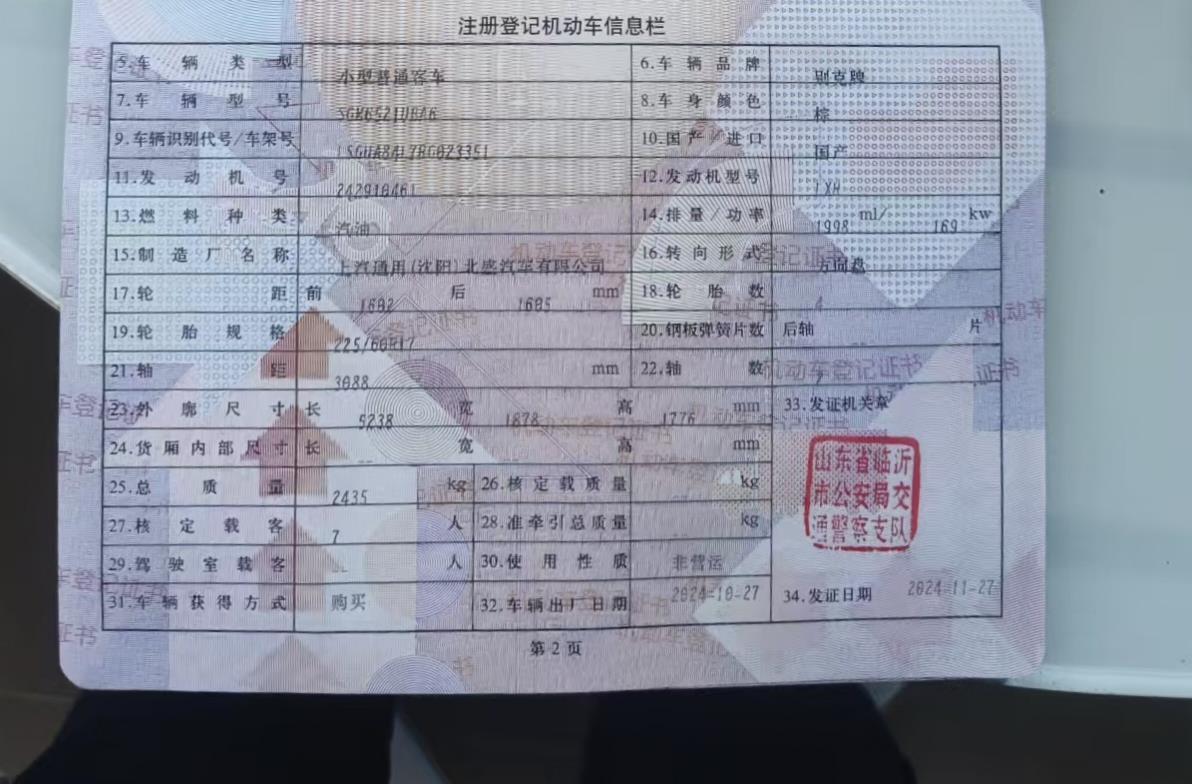 注册登记机动车信息栏
5.车辆类型 小型普通客车 6.车辆品牌 别克牌
7.车辆型号 SGM6521UBA6 8.车身颜色 棕
9.车辆识别代号/车架号 10.国产/进口 国产
11.发动机号 242910461 12.发动机型号 LXH
13.燃料种类 汽油 14.排量/功率 1998 ml/ 169 kw
15.制造厂名称 上汽通用(沈阳)北盛汽车有限公司 16.转向形式 方向盘
17.轮距 前 1602 后 1605 mm 18.轮胎数 4
19.轮胎规格 225/60R17 20.钢板弹簧片数 后轴 片
21.轴距 3088 mm 22.轴数 2
23.外廓尺寸 长 5238 宽 1878 高 1776 mm 33.发证机关章
24.货厢内部尺寸 长 -- 宽 -- 高 -- mm
25.总质量 2435 kg 26.核定载质量 -- kg
27.核定载客 7 人 28.准牵引总质量 -- kg
29.驾驶室载客 -- 人 30.使用性质 非营运
31.车辆获得方式 购买 32.车辆出厂日期 2024-10-27 34.发证日期 2024-11-27
山东省临沂
市公安局交
通警察支队
第 2 页